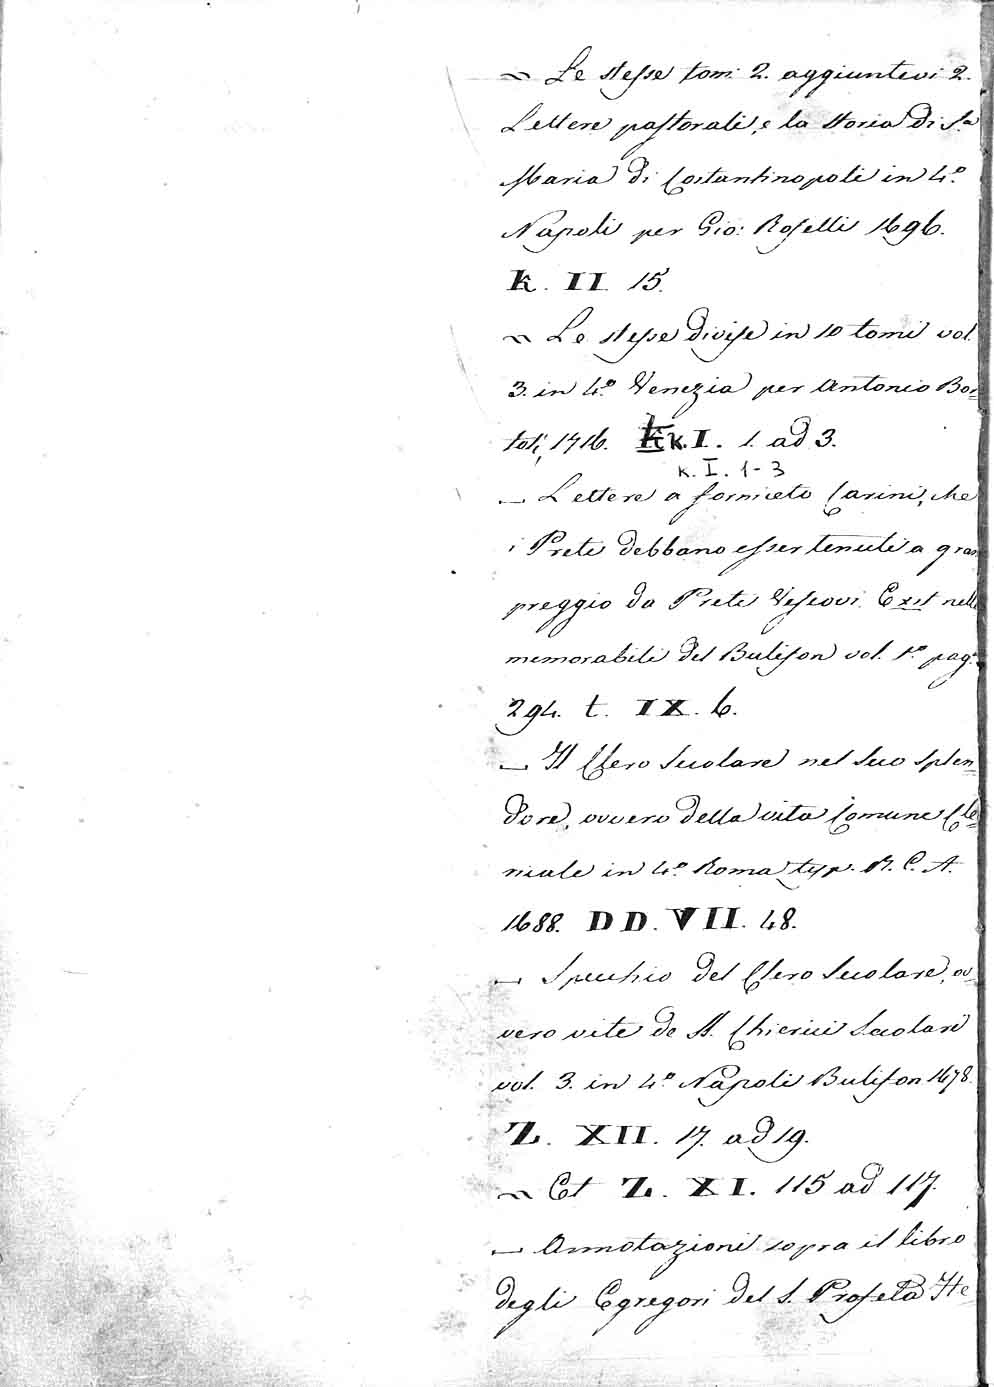 ~ Le stesse tom: 2. aggiuntevi 2.
Lettere pastorali, e la storia di S.a
Maria di Costantinopoli in 4.o
Napoli per Gio: Roselli 1696.
K. II. 15.
~ Le stesse divise in 10 tomi vol.
3. in 4.o Venezia per Antonio Bor=
toli, 1716. K.I. 1. ad 3.
K. I. 1-3
_ Lettere a Carini, che
i Preti debbano esser tenuti a gran
preggio da Preti Vescovi. Exst nelle
memorabili del Bulifon vol. 1.o pag.
294. t. IX. 6.
_ Il Clero Secolare nel suo Splen=
dore, ovvero della vita Comune Cle=
ricale in 4.o Roma typ. R. C. A.
1688. DD. VII. 48.
_ Specchio del Clero Secolare, ov=
vero vite de SS. Chierici Secolari
vol. 3. in 4.o Napoli Bulifon 1678.
Z. XII. 17. ad 19.
~ Et Z. XI. 115 ad 117.
_ Annotazioni sopra il libro
degli Egregori del S. Profeta He=